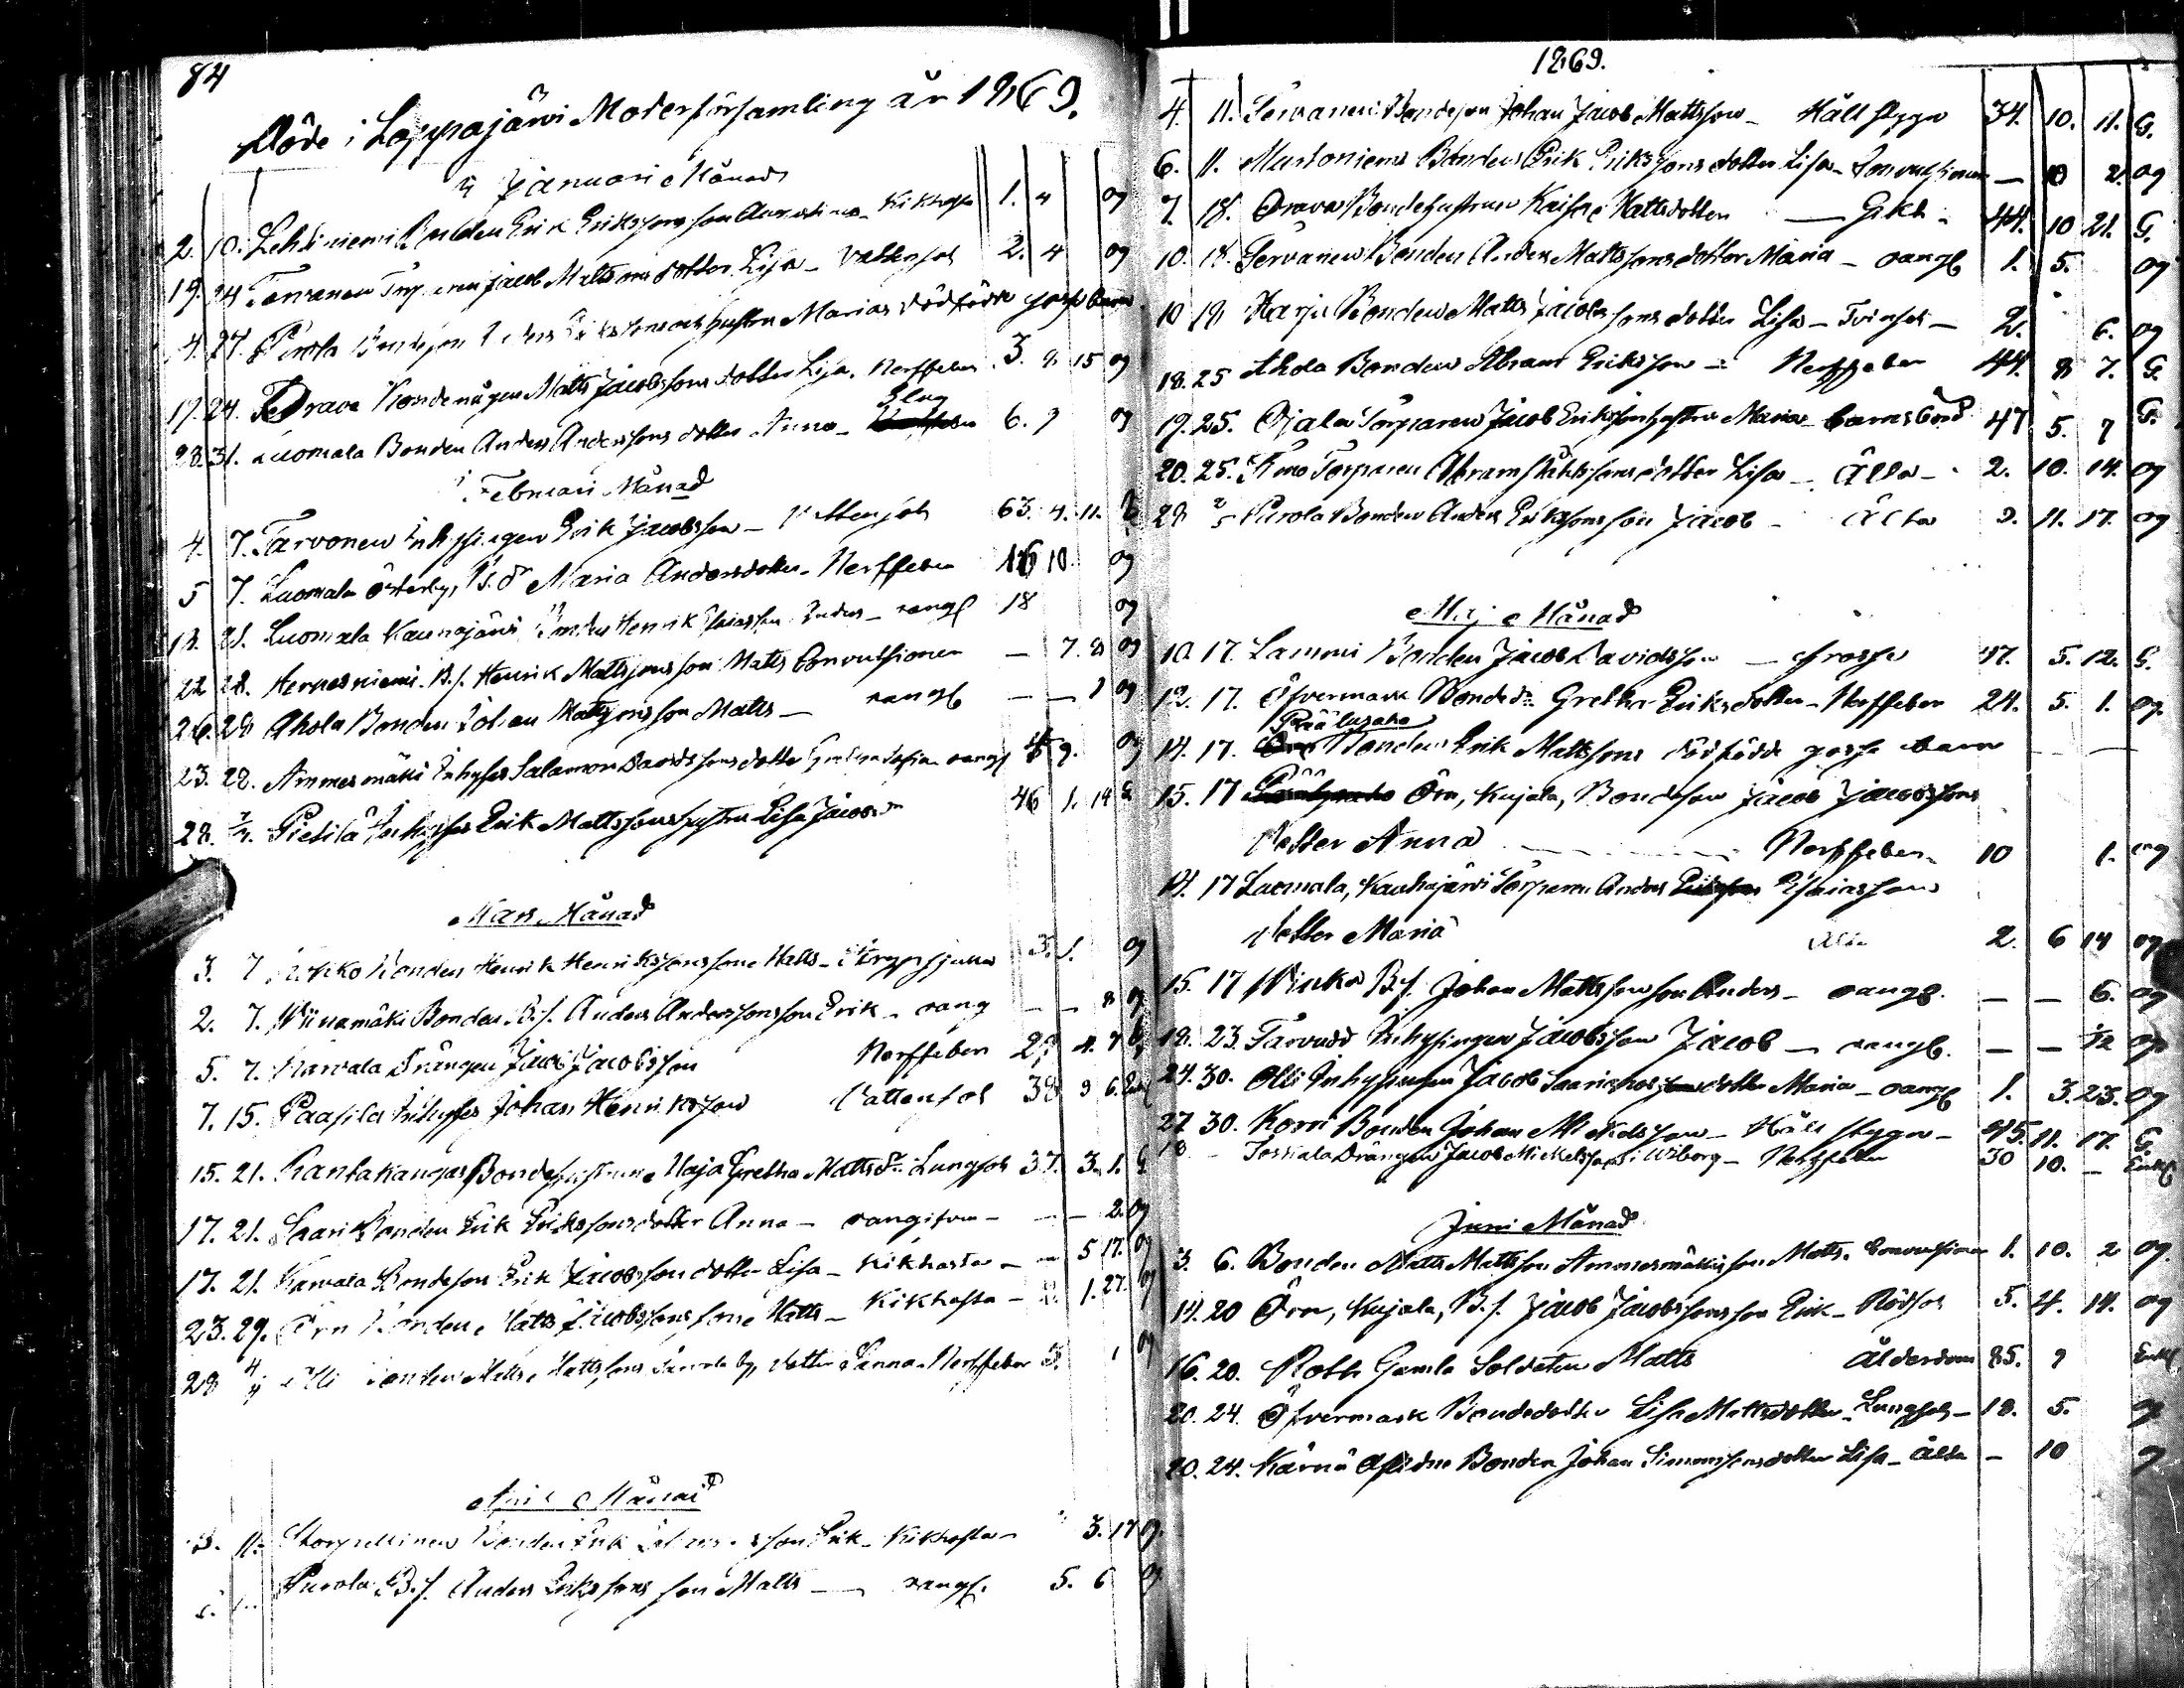 84
Döde i Lappajärvi Moderförsamling år 1869.
i Januari Månad
2. 10. Lehtiniemi Bonden Erik Erikssons son - Kikhosta 1. 4 og
19. 24 Tarvanen Jacob Mattssons dotter Lisa - Vattusot 2. 4 og
4. 24. Purola Bondeson Erikssons och hustru Marias dödfödde gosse barn
19. 24. Orava Bondemågen Matts Jacobssons dotter Lisa. Nerffeber 3. 8 15 og
28. 31. Luomala Bonden Anders Anderssons dotter Anna - Slag 6. 9 og
i Februari Månad
4. 7. Tarvonen Inhysingen Erik Jacobsson - Vattusot 63. 4. 11. G
5 7. Luomala Österby, B. dr Maria Andersdotter - Nerffeber 16 10. og
12. 21. Luomala Kauhajärvi Henrik Esaiasson - rangl 18 og
22 28. Hernesniemi B.s. Henrik Mattssons son Matts Convulsioner — 7. 8 og
26. 28 Ahola Bonden Johan Mattssons son Matts - rangl — — 1 og
23. 28. Ammesmäki Inhyses Salamon Davidssons dotter rangl 9. og
28. 7/3. Pietilä Inhyses Erik Mattssons hustru Lisa Jacobsdr 46 1. 14 G
Mars Månad
3. 7 Bonden Henrik Henrikssons son Matts - Strypsjuka 3. 1. og
2. 7. Wiinamäki Bonden B.s. Anders Anderssons son Erik - rang — — 8 og
5. 7. Karvala Drängen Jacob Jacobsson Nerffeber 29 4. 7 G
7. 15. Paasila Inhyses Johan Henriksson Vattusot 38 9 6. Enkl
15. 21. Rantakangas Bondehustrun Maja Gretha Mattsdr. Lungsot 37. 3. 1. G
17. 21. Saari Bonden Erik Erikssons dotter Anna - — — 2. og
17. 21. Karvala Bondeson Erik Jacobssons dotter Lisa - Kikhosta - — 5 17. og
23. 29. Örn Bonden Matts Jacobssons son Matts - Kikhosta - 2. 1. 27. og
28 4/4 Olli Bonden Matts Mattssons dotter Sanna - Nerffeber 3. 1 og
April Månad
3. 11. Bonden Erik son Erik - Kikhosta - 3. 17 og.
Purola B.s. Anders Erikssons son Matts - rangl. 5. 6 og
1869.
4. 11. Servanen Bondeson Johan Jacob Mattsson - Håll stygn 34. 10. 11. G.
6. 11. Mustoniemi Bonden Erik Erikssons dotter Lisa - Convulsioner — 10 2. og
7. 18. Orava Bondehustrun Kaisa Mattsdotter — Gikt - 44. 10 21. G.
10. 18. Servanen Bonden Anders Mattssons dotter Maria - rangl 1. 5. og
10 19. Harju Bonden Matts Jacobssons dotter Lisa - Tvinsot - 2. 6. og
18. 25 Ahola Bonden Abram Eriksson - Nerffeber 44. 8 7. G.
19. 25. Ojala Torparen Jacob Erikssons hustru Maria - barnsbörd 47 5. 7 G.
20. 25. Torparen Abram dotter Lisa - Älta - 2. 10. 14. og
28 2/5 Purola Bonden Anders Erikssons son Jacob - Älta 3. 11. 17. og
Maj Månad
10. 17. Lammi Bonden Jacob Davidsson - frossa 47. 5. 12. G.
12. 17. Öfvermark Bondedr. Gretha Eriksdotter - Nerffeber 24. 5. 1. og.
14. 17. Bonden Erik Mattssons dödfödde gosse barn — —
15. 17 Örn, Kujala, Bondeson Jacob Jacobssons
dotter Anna Nerffeber. 10 1. og
14. 17 Luomala, Kauhajärvi Torparen Anders Esaiassons
dotter Maria Älta 2. 6 14 og
15. 17 Wirka B.s. Johan Mattssons son Anders - rangl. — — 6. og
18. 23. Tarvudd Inhysingen Jacobsson Jacob - rangl. — — 1/2 og
24. 30. Olli Inhysingen Jacob dotter Maria - rangl 1. 3. 23. og
27 30. Korvi Bonden Johan Mickelsson - Håll stygn - 45. 11. 17. G.
18 - Toskala Drängen Jacob Mickelsson i Wiborg - Nerffeber 30 10. — Enkl
Juni Månad
3. 6. Bonden Matts Mattsson Ammesmäkis son Matts. Convulsioner 1. 10. 2 og.
14. 20 Örn, Kujala, B.s. Jacob Jacobssons son Erik - Rödsot 5. 4. 14. og
16. 20. Roth Gamla Soldaten Matts Ålderdom 85. 9 Enkl
20. 24. Öfvermark Bondedotter Lisa Mattsdotter - Lungsot - 18. 5. og
20. 24. Kärnä Aflidne Bonden Johan Simonssons dotter Lisa - Älta - 10 og